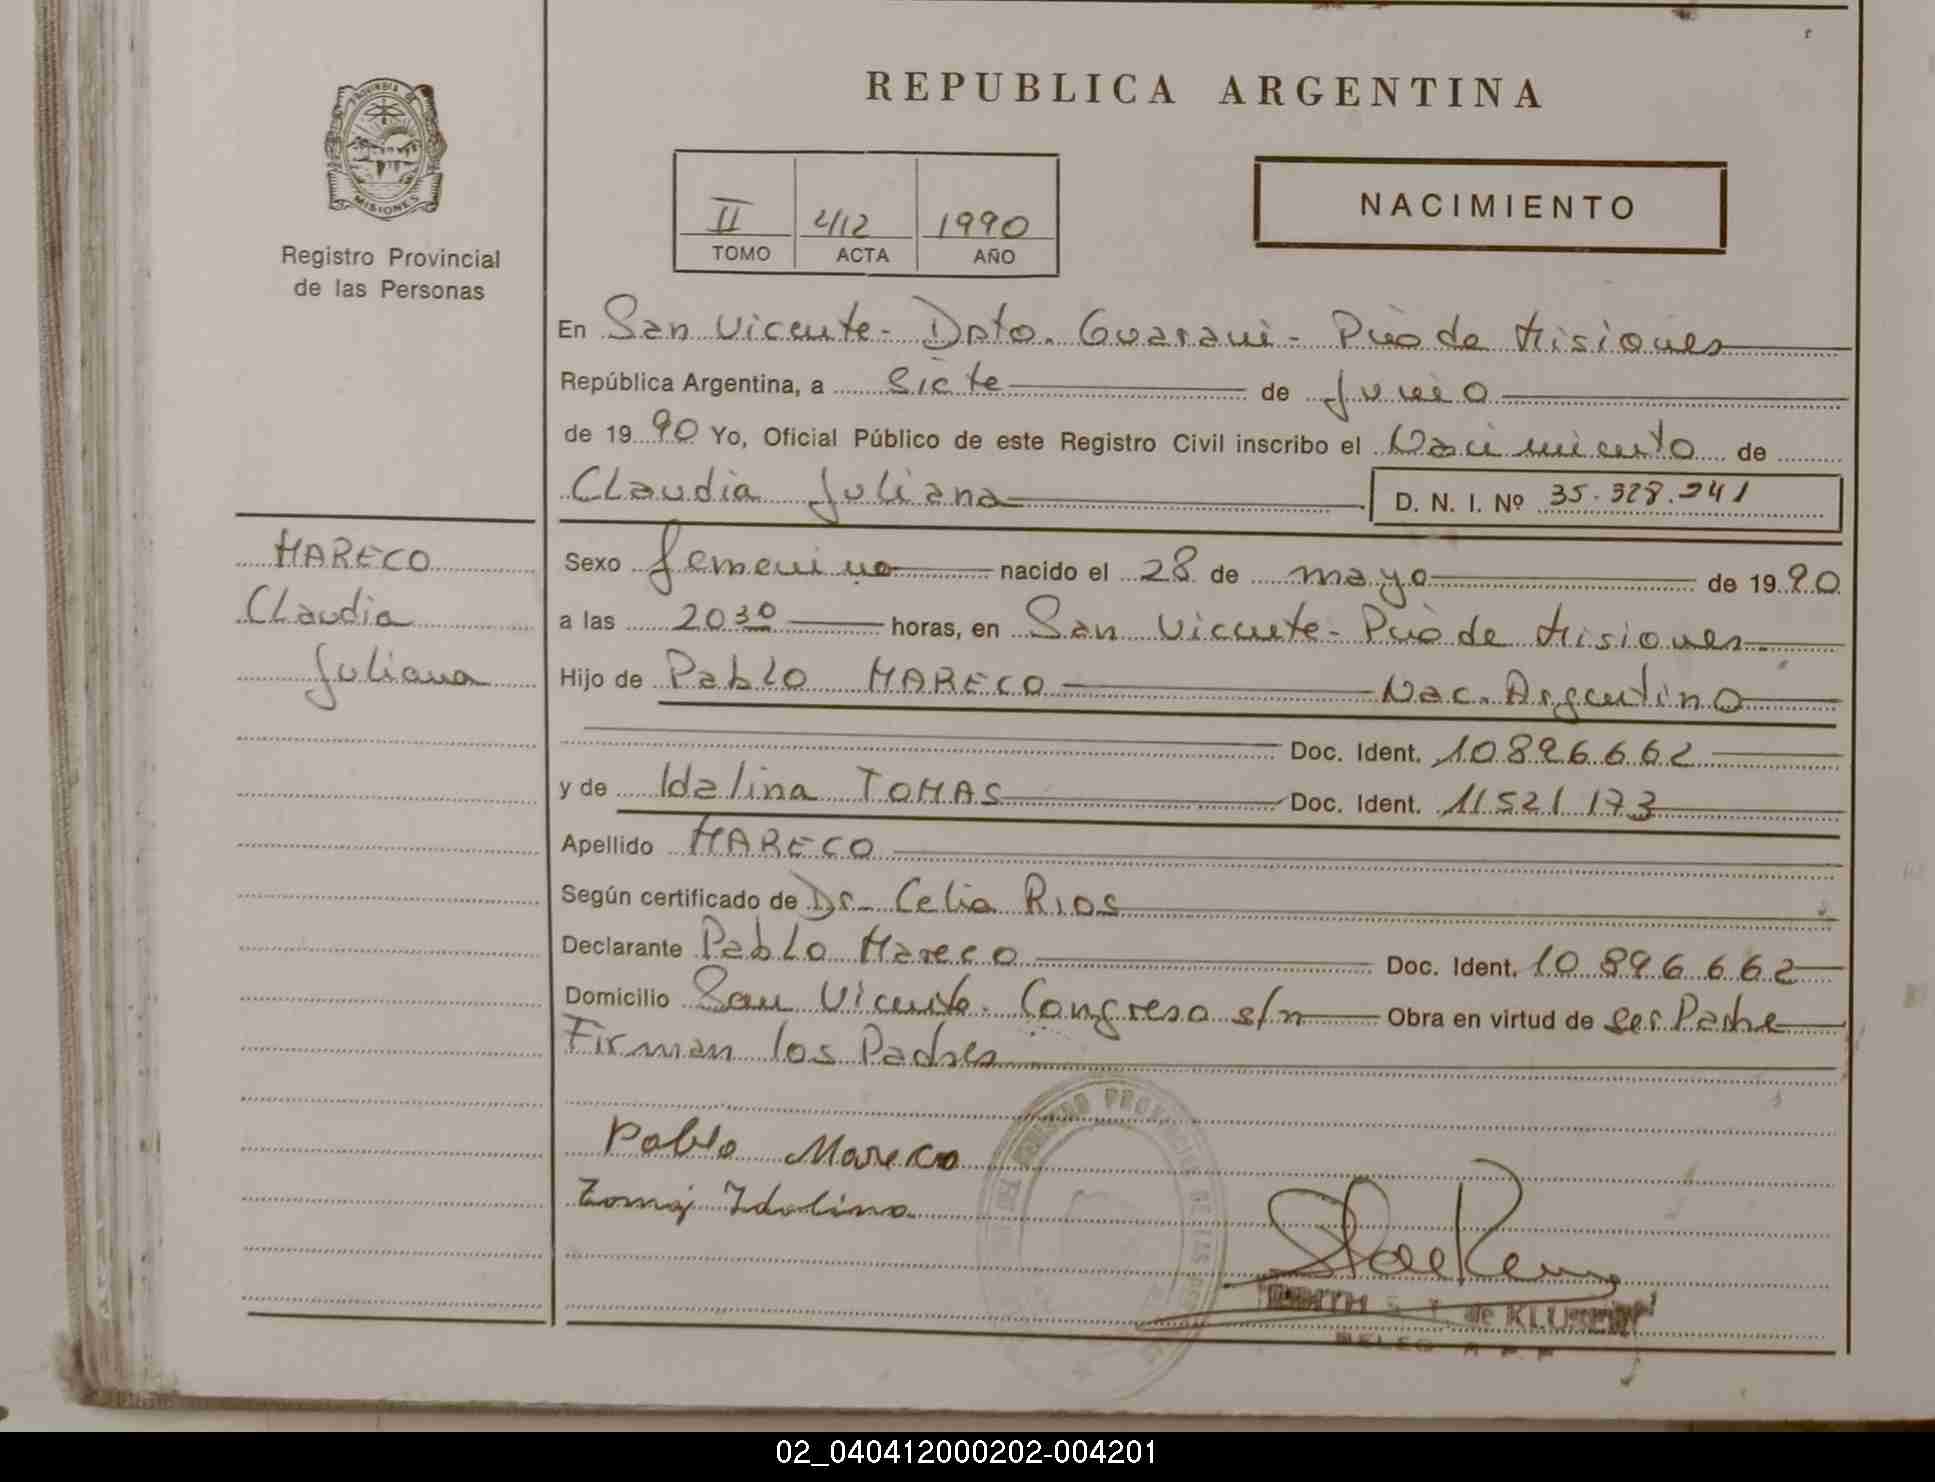 REPUBLICA ARGENTINA
PROVINCIA DE
MISIONES
Registro Provincial
de las Personas
II 412 1990
TOMO ACTA AÑO
NACIMIENTO
En San Vicente - Dpto. Guarani - Pcio de Misiones
República Argentina, a siete de junio
de 1990 Yo, Oficial Público de este Registro Civil inscribo el Nacimiento de
Claudia Juliana
D. N. I. Nº 35.328.241
MARECO
Claudia
Juliana
Sexo femenino nacido el 28 de mayo de 1990
a las 20 30 horas, en San Vicente - Pcio de Misiones
Hijo de Pablo MARECO Nac. Argentino
Doc. Ident. 10896662
y de Idalina TOMAS Doc. Ident. 11521173
Apellido MARECO
Según certificado de Dr. Celia Rios
Declarante Pablo Mareco Doc. Ident. 10896662
Domicilio San Vicente - Congreso s/n Obra en virtud de ser Padre
Firman los Padres
Pablo Mareco
Tomaz Idalina
de
02_040412000202-004201